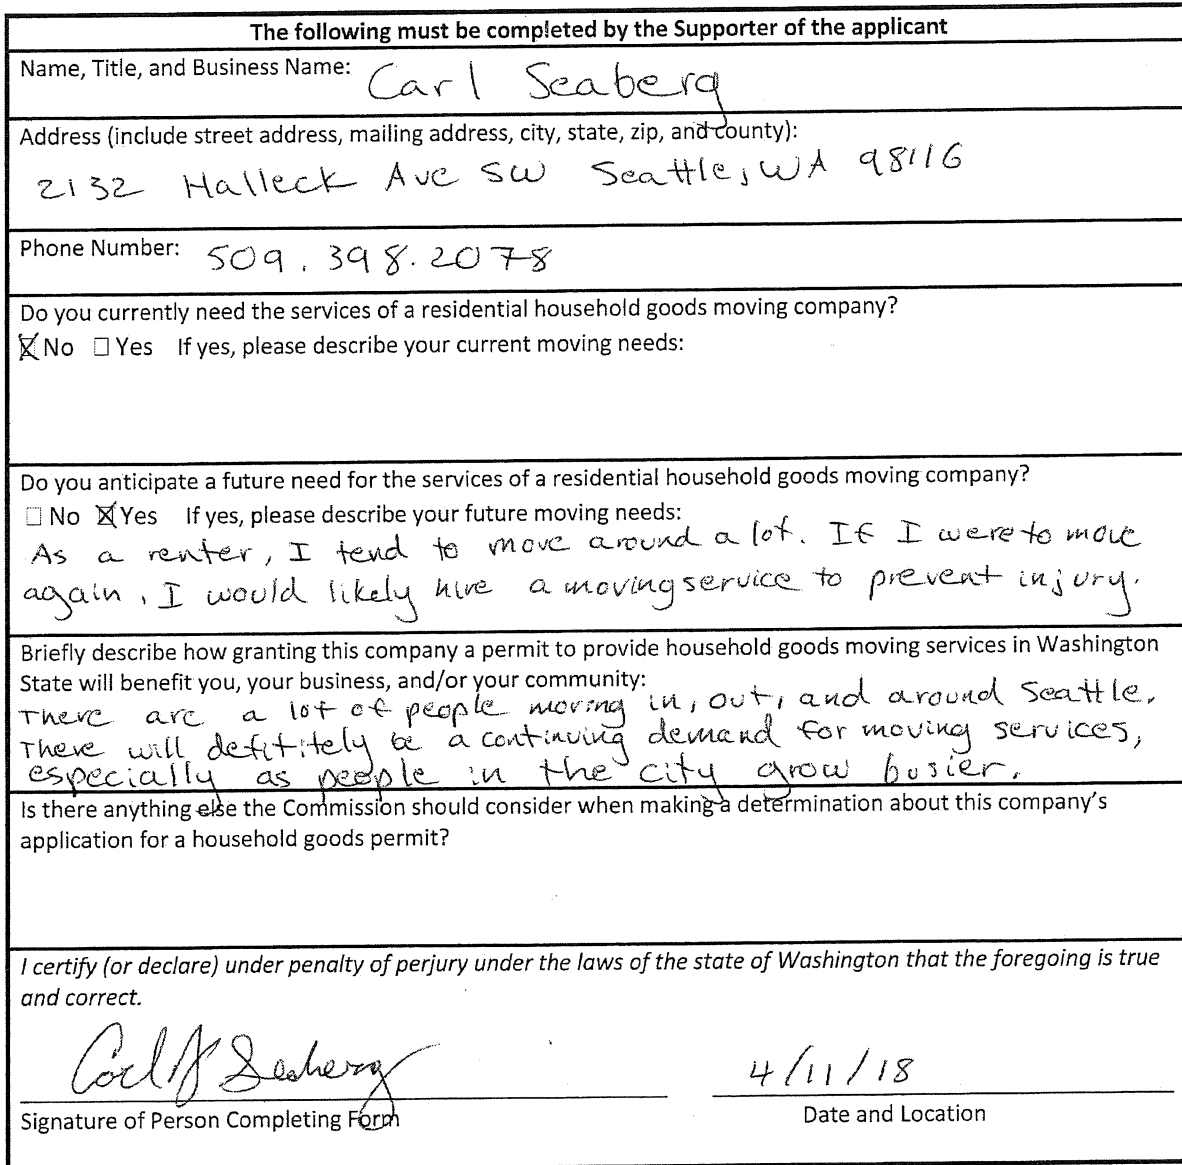 The following must be completed by the Supporter of the applicant
Name, Title, and Business Name: Carl Seaberg
Address (include street address, mailing address, city, state, zip, and county):
2132 Halleck Ave SW Seattle, WA 98116
Phone Number: 509.398.2078
Do you currently need the services of a residential household goods moving company?
☒ No ☐ Yes If yes, please describe your current moving needs:
Do you anticipate a future need for the services of a residential household goods moving company?
☐ No ☒ Yes If yes, please describe your future moving needs:
As a renter, I tend to move around a lot. If I were to move
again, I would likely hire a moving service to prevent injury.
Briefly describe how granting this company a permit to provide household goods moving services in Washington
State will benefit you, your business, and/or your community:
There are a lot of people moving in, out, and around Seattle.
There will defititely be a continuing demand for moving services,
especially as people in the city grow busier.
Is there anything else the Commission should consider when making a determination about this company's
application for a household goods permit?
I certify (or declare) under penalty of perjury under the laws of the state of Washington that the foregoing is true
and correct.
Carl J Seaberg
4/11/18
Signature of Person Completing Form
Date and Location